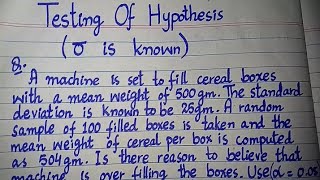 Testing Of Hypothesis
(σ is known)
Q.
A machine is set to fill cereal boxes
with a mean weight of 500gm. The standard
deviation is known to be 25gm. A random
sample of 100 filled boxes is taken and the
mean weight of cereal per box is computed
as 504gm. Is there reason to believe that
machine is over filling the boxes. Use α = 0.05